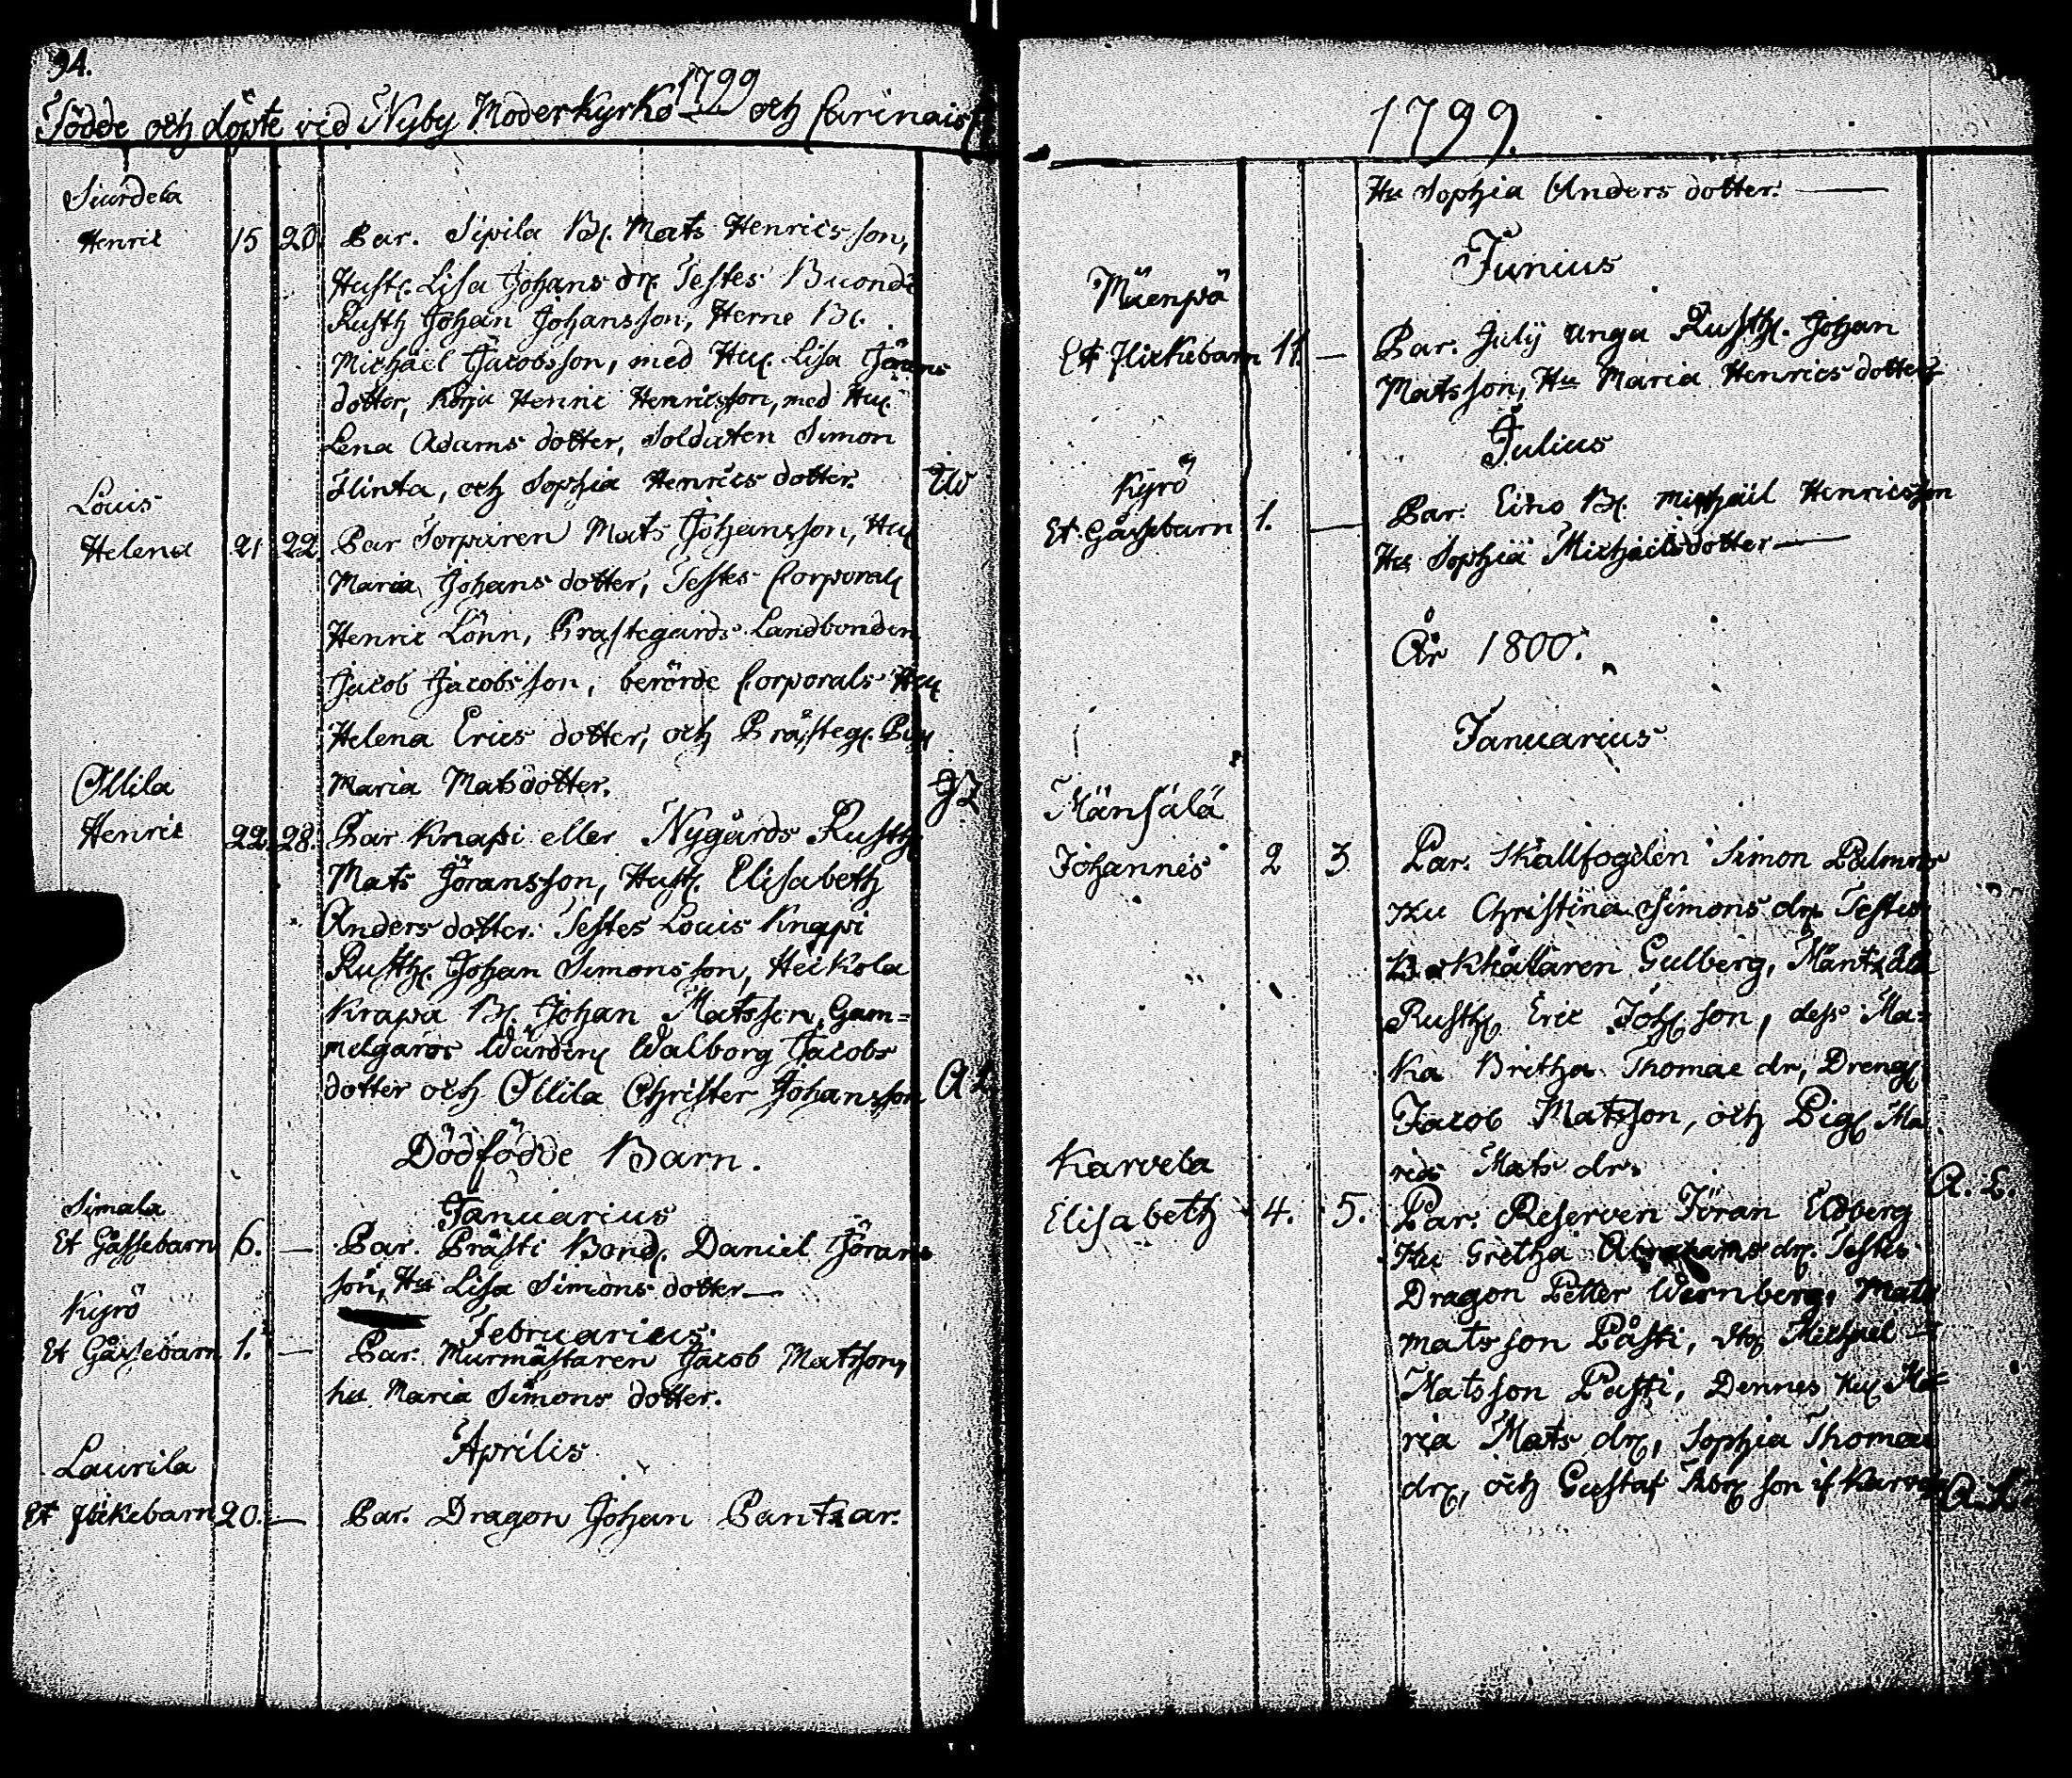 94.
1799
Födde och döpte vid Nyby Moderkyrko och Carinais
Siurdela
Henric 15 20 Par. Sipila B. Mats Henrics son,
Hust. Lisa Johans dr. Testes Buondi
Rusth Johan Johansson, Herne B.
Michael Jacobsson, med Hu. Lisa Jörans
dotter, Korju Henric Henricsson, med Hu.
Lena Adams dotter, Soldaten Simon
Flinta, och Sophia Henrics dotter.
Louis
Helena 21 22 Par Torparen Mats Johansson, Hu
Maria Johans dotter, Testes Corporal
Henric Lönn, Prastegårds Landbonden
Jacob Jacobsson, berörde Corporals Hu
Helena Erics dotter, och Prästeg. Pig
Maria Matsdotter.
Ollila
Henric 22. 28. Par Knapi eller Nygårds Rusth
Mats Jöransson, Hust. Elisabeth
Anders dotter. Testes Louis Knapi
Rusth. Johan Simonsson, Heikola
Krapa B. Johan Matsson, Gam=
melgårds Wärdin Walborg Jacobs
dotter och Ollila Christer Johansson A L
Dödfödde Barn.
Januarius
Simala
Et Gåssebarn 6. — Par. Prästi Bond. Daniel Jörans
son, Hu Lisa Simons dotter —
Februarius.
Kyrö
Et Gåssebarn 1. — Par. Murmästaren Jacob Matsson,
hu Maria Simons dotter.
Aprilis
Laurila
Et flickebarn 20. — Par. Dragon Johan Pantzar.
1799.
Hu Sophia Anders dotter. —
Junius
Mäenpä
Et Flickebarn 11. — Par. July unga Rusth. Johan
Matsson, Hu Maria Henrics dotter
Julius
Kyrö
Et Gåssebarn 1. — Par. Eino B. Michäil Henricsson
Hu Sophia Michaelsdotter —
År 1800.
Januarius
Mänsälä
Johannes 2 3 Par. Skallfogden Simon Palmros
Hu Christina Simons dr. Testes
Bokhålaren Gulberg, Mäntzälä
Rusth Eric Joh. son, dess Ma=
ka Britha Thomae dr, Dreng
Jacob Matsson, och Pig. Ma
ria Mats dr. A. L.
Karvela
Elisabeth 4. 5. Par. Reserven Jöran Edberg
Hu Gretha Abrahams dr. Testes
Dragon Petter Wernberg, Mats
matsson Påsti, Michael
Matsson Pasti, Dennes Hu Ma=
ria Mats dr., Sophia Thomae
dr, och Gustaf son if Karvela A. L.